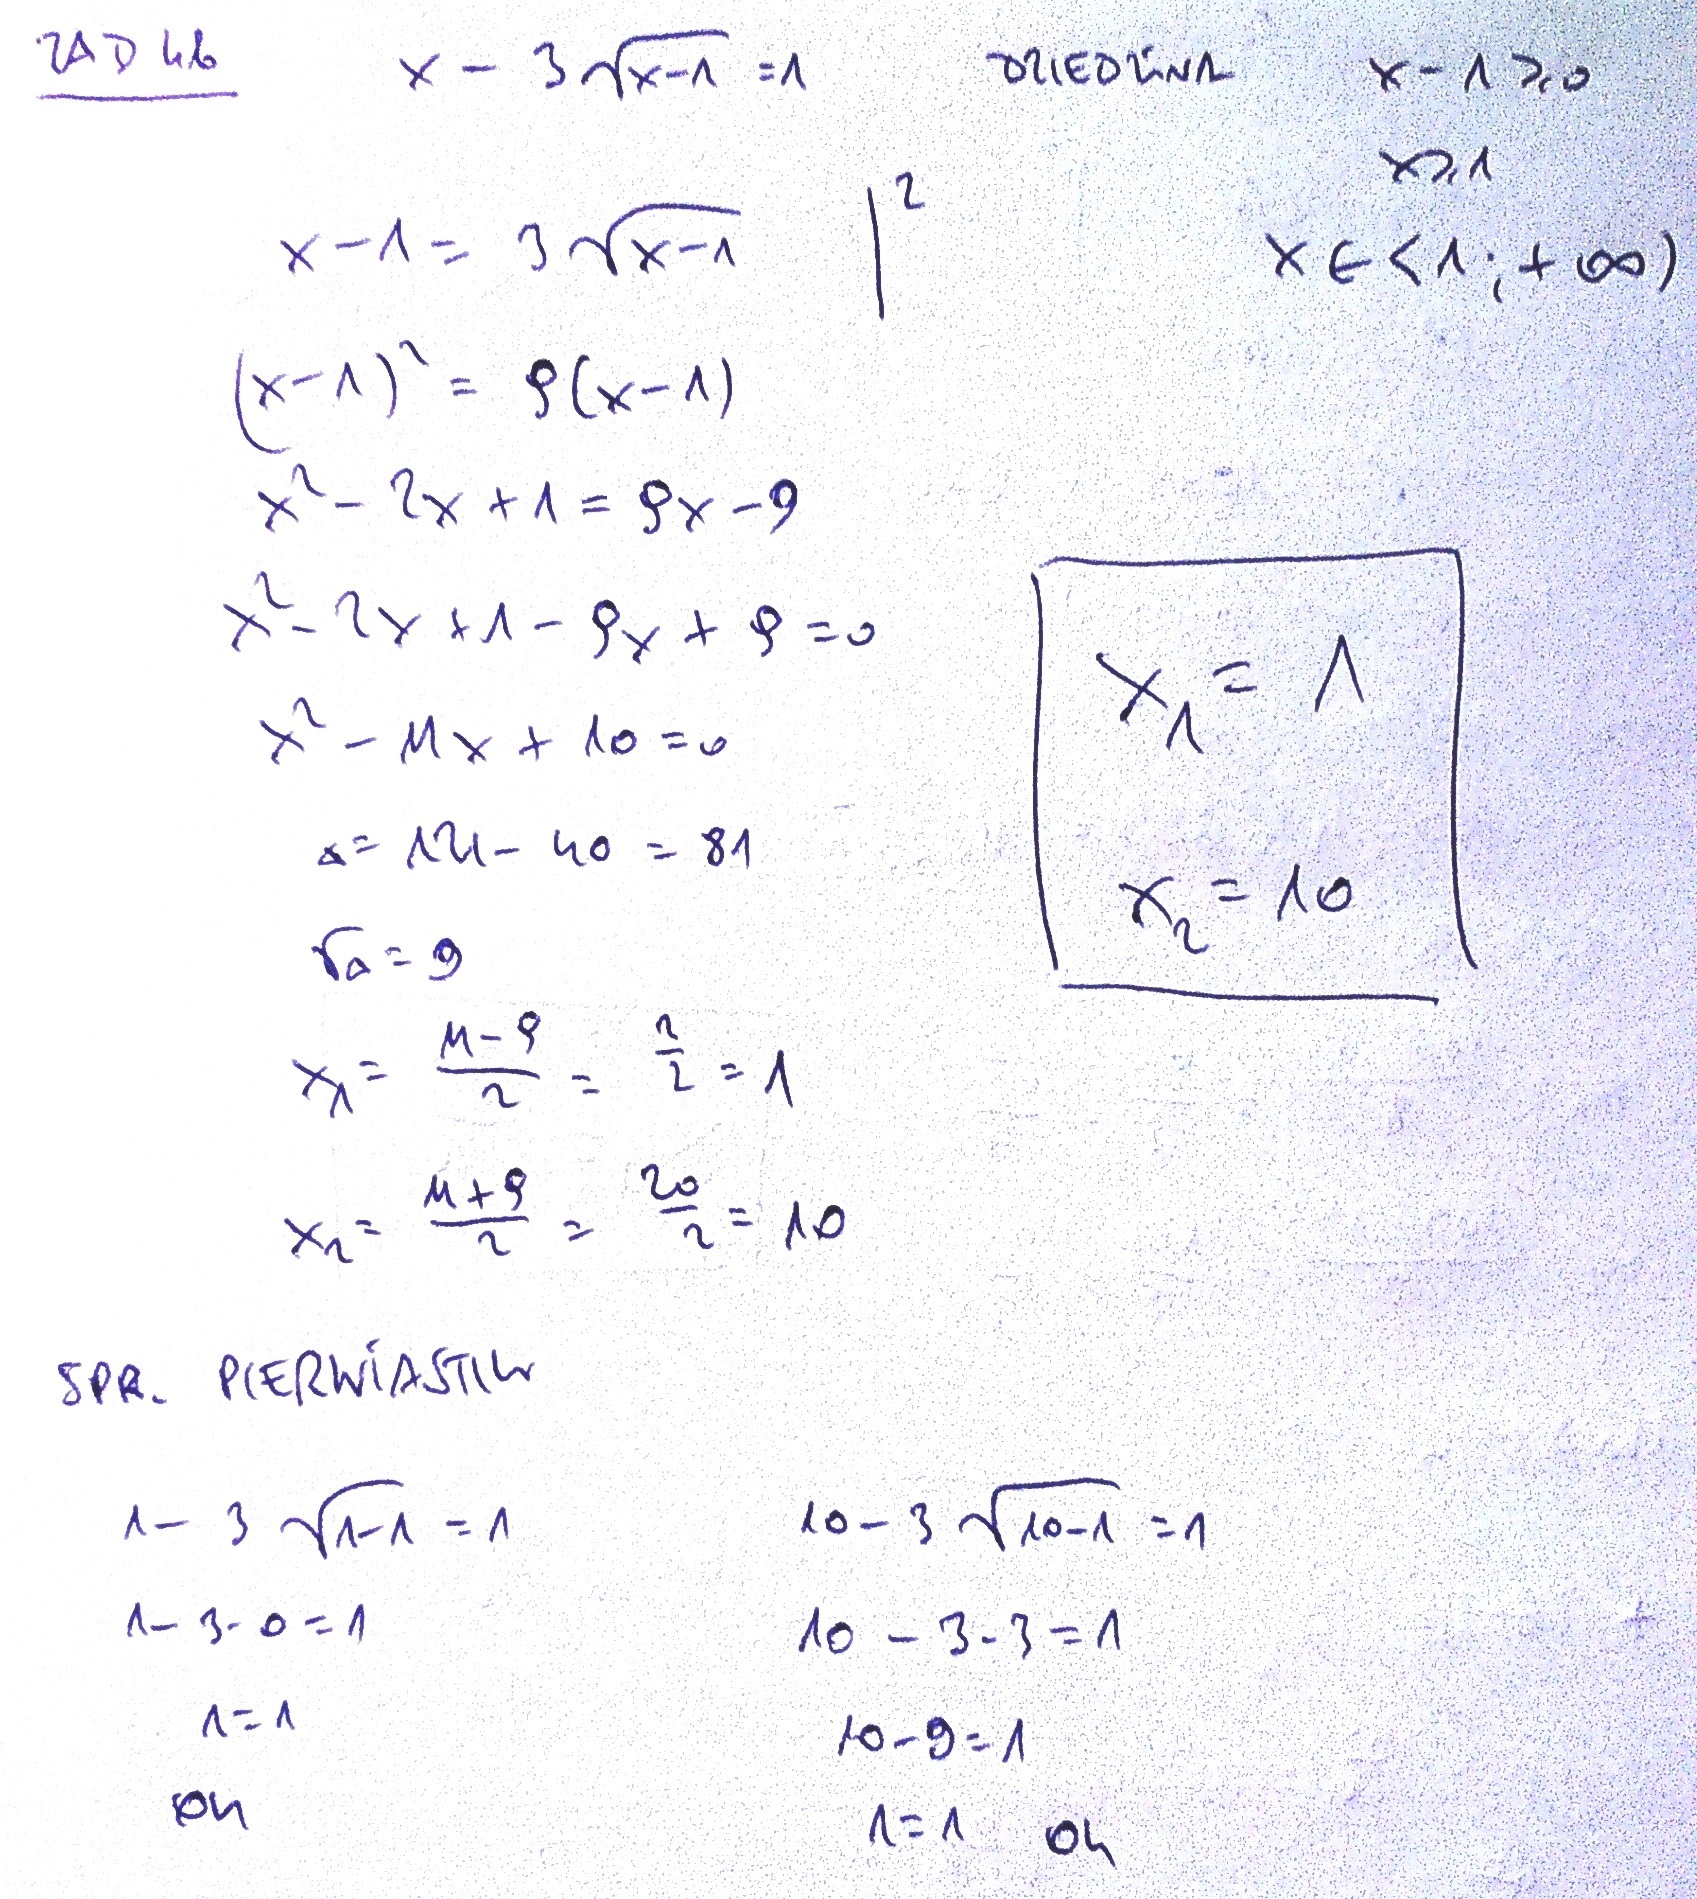 ZAD 4b x - 3√(x-1) = 1 DZIEDZINA x - 1 ≥ 0
x ≥ 1
x - 1 = 3√(x-1) |² x ∈ <1 ; + ∞)
(x-1)² = 9(x-1)
x² - 2x + 1 = 9x - 9
x² - 2x + 1 - 9x + 9 = 0
x² - 11x + 10 = 0
Δ = 121 - 40 = 81
√Δ = 9
x₁ = (11-9)/2 = 2/2 = 1
x₂ = (11+9)/2 = 20/2 = 10
x₁ = 1
x₂ = 10
SPR. PIERWIASTKÓW
1 - 3√(1-1) = 1
1 - 3·0 = 1
1 = 1
OK
10 - 3√(10-1) = 1
10 - 3·3 = 1
10 - 9 = 1
1 = 1 OK